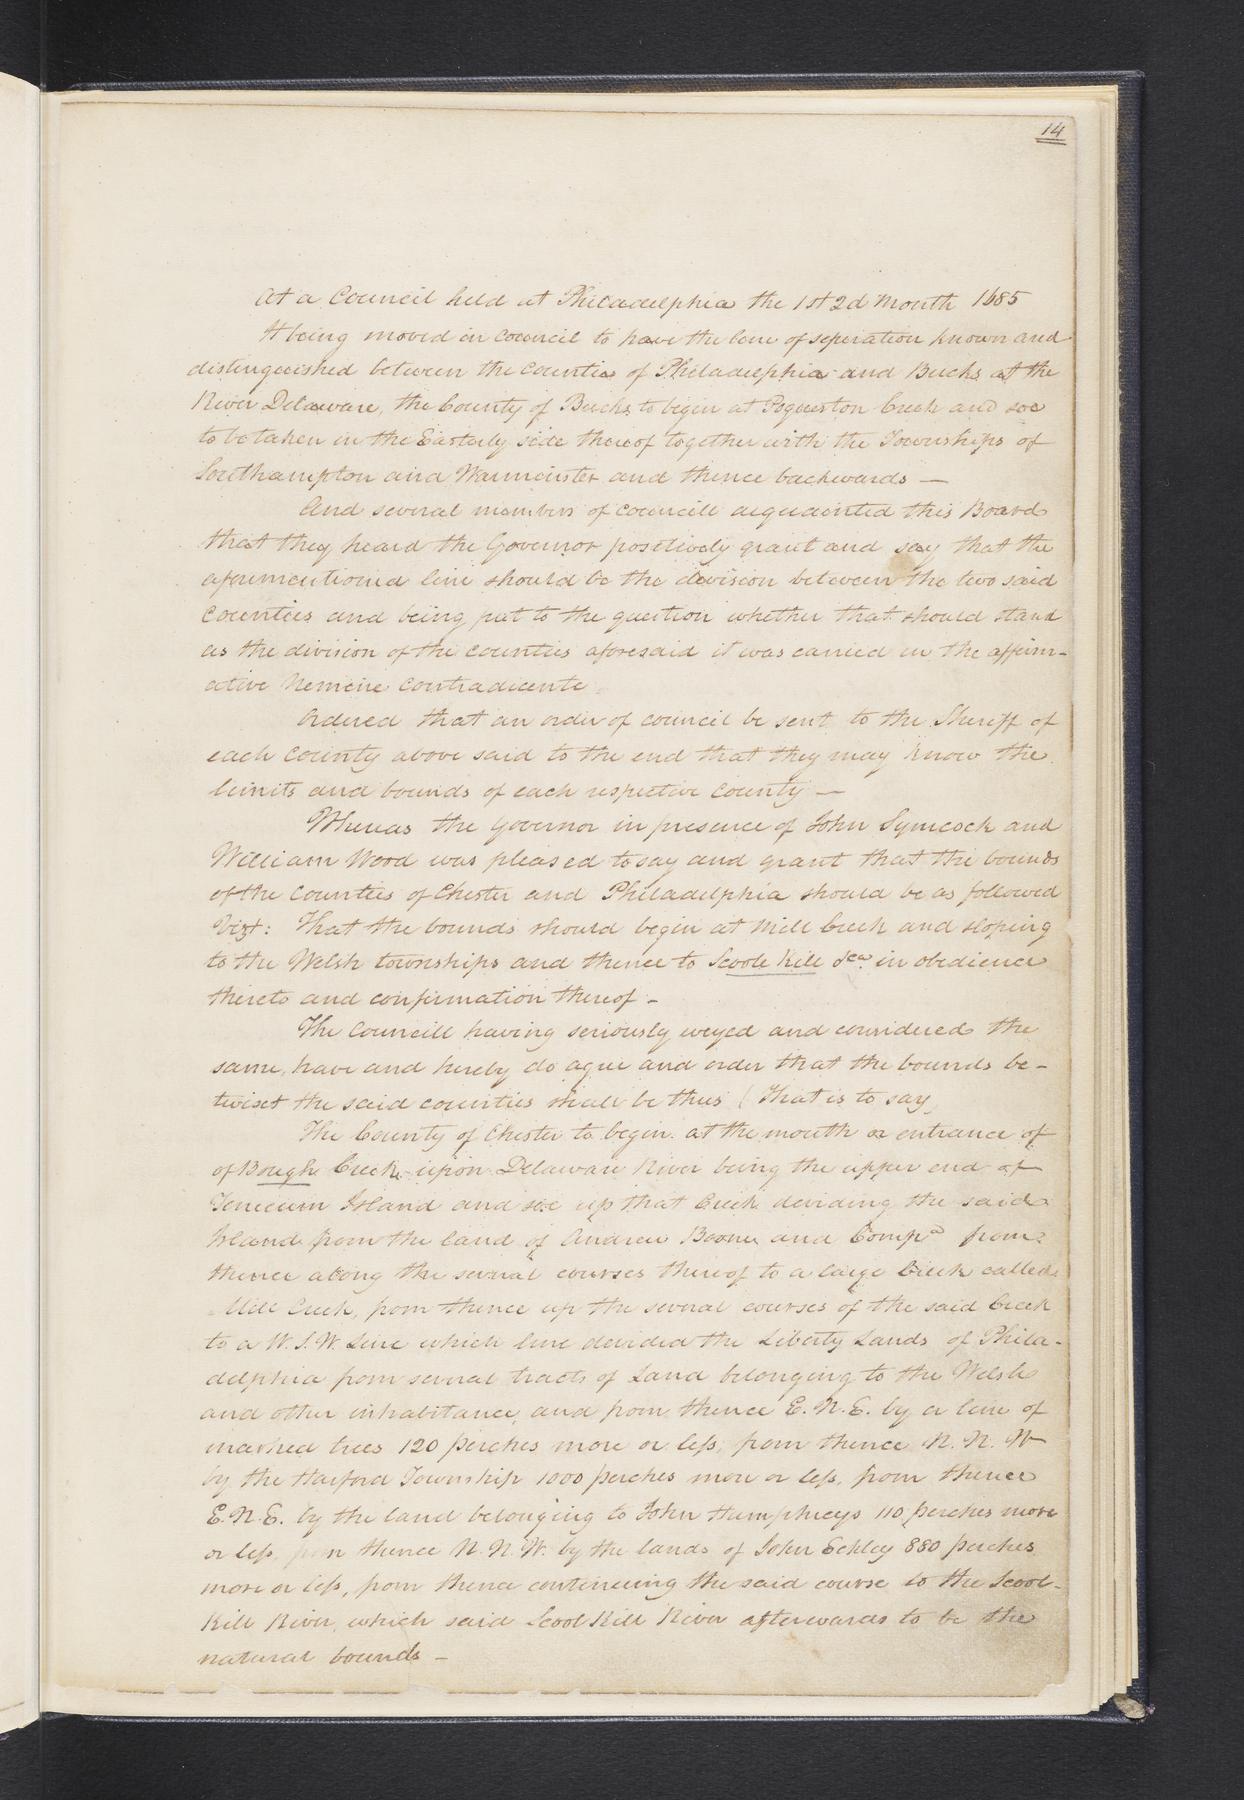 14
At a Council held at Philadelphia the 1st 2d Month 1685
It being moved in Council to have the line of seperation known and
distinguished between the Counties of Philadelphia and Bucks at the
River Delaware, the County of Bucks to begin at Poqueston Creek and soe
to be taken in the Easterly side thereof together with the Townships of
Southampton and Warminster and thence backwards —
And several members of Councill acquainted this Board
that they heard the Governor positively grant and say that the
aforementioned line should be the division between the two said
Counties and being put to the question whether that should stand
as the division of the Counties aforesaid it was carried in the affirm-
ative Nemeine Contradicente
Ordered that an order of council be sent to the Sheriff of
each County above said to the end that they may know the
limits and bounds of each respective County —
Whereas the Governor in presence of John Symcock and
William Wood was pleased to say and grant that the bounds
of the Counties of Chester and Philadelphia should be as followed
Vizt: That the bounds should begin at Mill Creek and sloping
to the Welsh townships and thence to Scoole Kill &ca in obedience
thereto and confirmation thereof –
The Councill having seriously weyed and considered the
same, have and hereby do agree and order that the bounds be-
twixt the said counties shall be thus ( That is to say,
The County of Chester to begin at the mouth or entrance of
of Bough Creek upon Delaware River being the upper end of
Tenecum Island and soe up that Creek deviding the said
Island from the land of Andrew Boone and Compa from
thence along the several courses thereof to a large Creek called
Mill Creek, from thence up the several courses of the said Creek
to a W.S.W. Line which line devided the Liberty Lands of Phila-
delphia from several tracts of Land belonging to the Welsh
and other inhabitance, and from thence E.N.E. by a line of
marked trees 120 perches more or less, from thence N. N. W
by the Harford Township 1000 perches more or less, from thence
E.N.E. by the land belonging to John Humphreys 110 perches more
or less, from thence N.N.W. by the lands of John Eckley 880 perches
more or less, from thence continueing the said course to the Scool-
Kill River, which said Scool Kill River afterwards to be the
natural bounds –